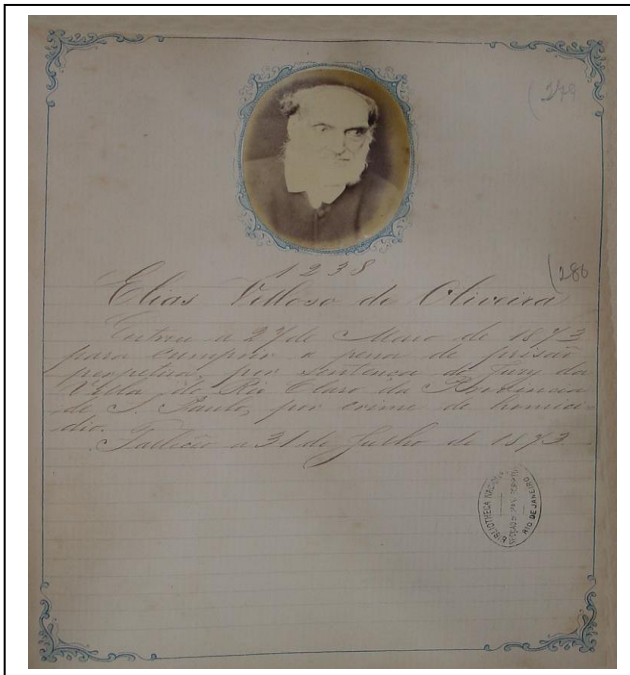 (279
1238
(286
Elias Velloso de Oliveira
Entrou a 27 de Maio de 1873
para cumprir a pena de prisão
perpetua, por sentença do Jury da
Villa do Rio Claro da Provincia
de S. Paulo, por crime de homici-
dio.
Falleceo a 31 de Julho de 1873
BIBLIOTHECA NACIONAL
RIO DE JANEIRO